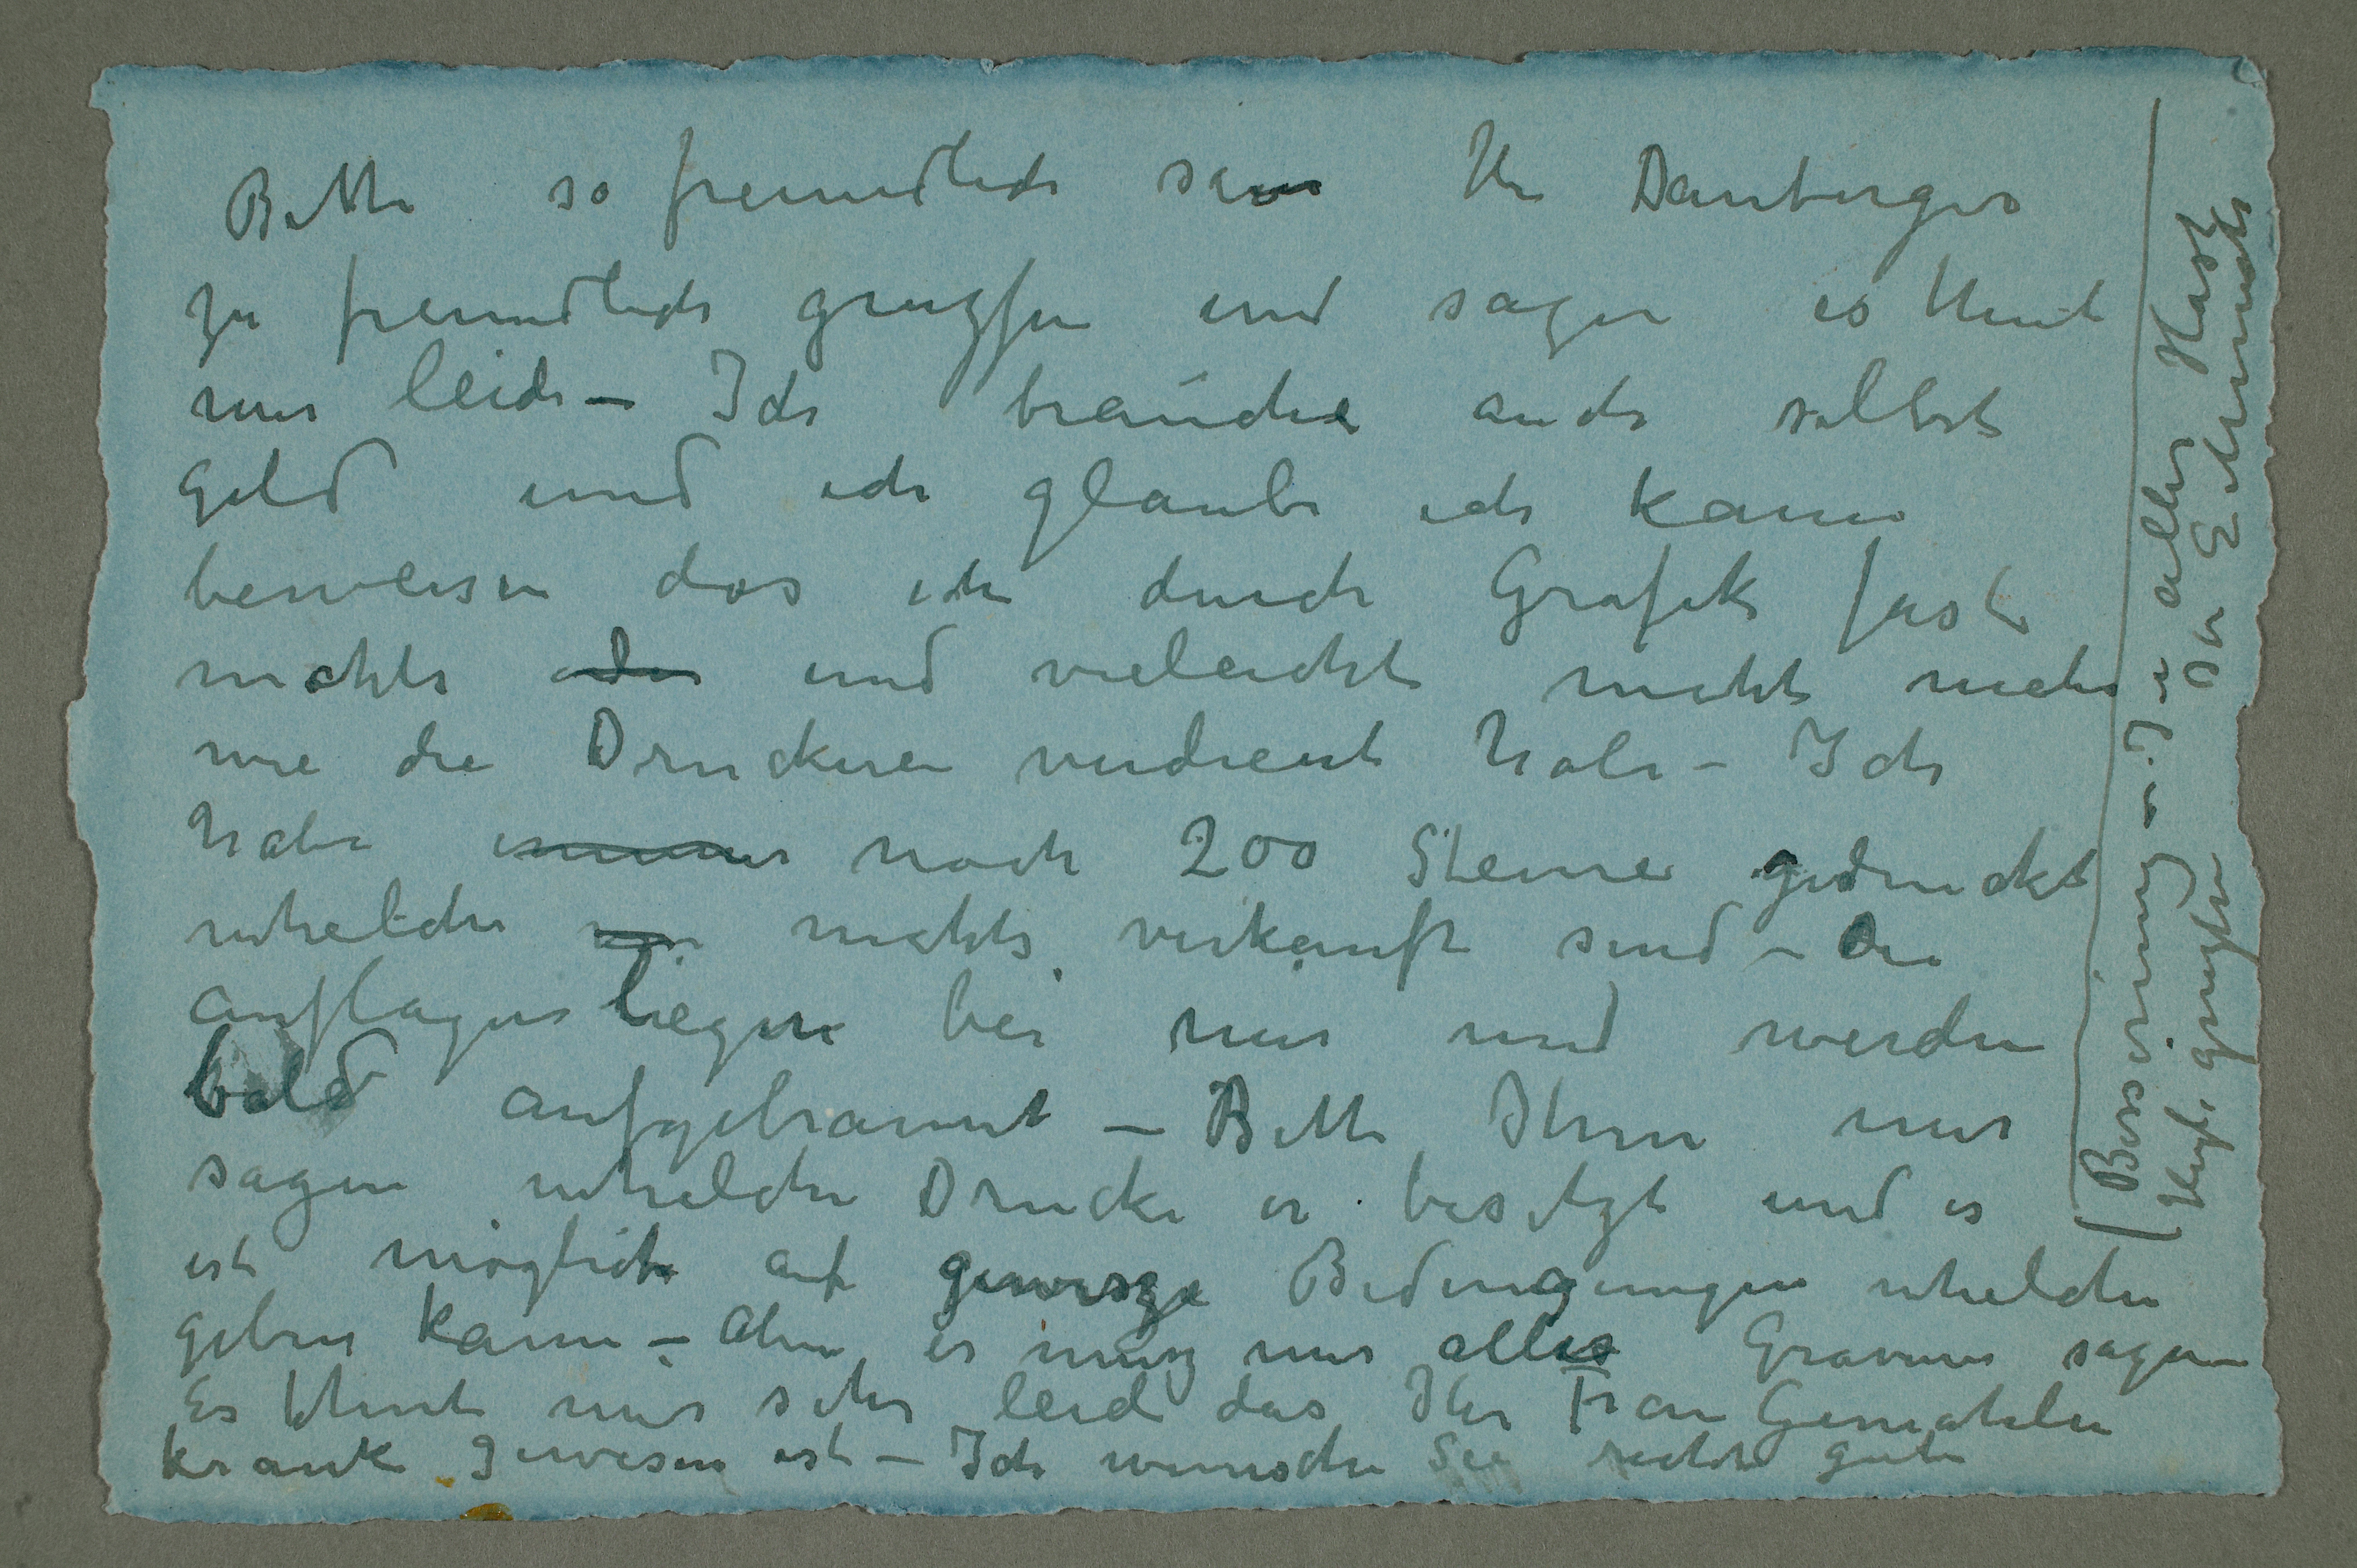 Bitte so freundlich sein Hr Danberger
zu freundlich gruzsen und sagen es thut
mir leid – Ich brauche auch selbst
Geld und ich glaube ich kann
beweisen das ich durch Grafik fast
nichts oder und vieleicht nicht mehr
wie die Druckerei verdient habe – Ich
habe immer noch 200 Steine gedruckt
whelche nichts verkauft sind – Die
Auflagen liegen bei mir und werden
bald aufgebrannt – Bitte Ihm mir
sagen whelche Drucke er besitzt und es
ist möglich auf gewisze Bedingungen whelche
geben kann – Aber er musz mir alles Gravure sagen
Es thut mir sehr leid das Ihr Frau Gemahlin
krank gewesen ist – Ich wunsche Sie recht gute
Besserung – In aller Hast
Herzl. gruszen Ihr E Munch